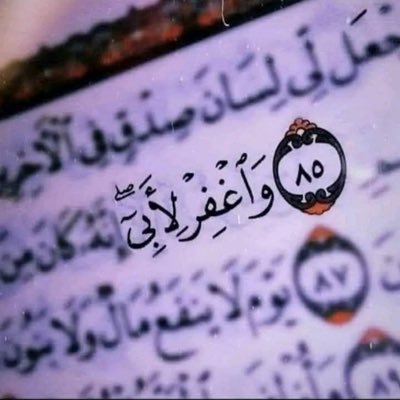 جْعَل لِّي لِسَانَ صِدْقٍ فِي ٱلْأٓخِرِ
٨٥ وَٱغْفِرْ لِأَبِيٓ ۖ إِنَّهُۥ كَانَ مِنَ
٨٧ يَوْمَ لَا يَنفَعُ مَالٌ وَلَا بَنُونَ